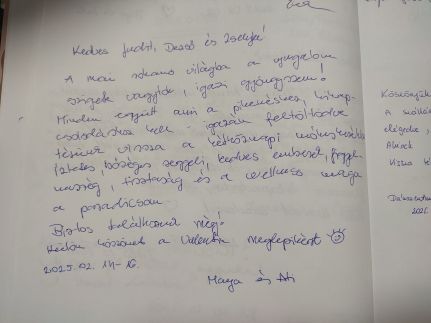 Kedves Judit, Dezső és Zselyke!
A mai rohanó világba a nyugalom
szigete vagytok, igazi gyöngyszem.
Minden együtt ami a pihenéshez, kikap-
csolódáshoz kell - igazán feltöltődve
térünk vissza a hétköznapi
Ízletes, bőséges reggeli, kedves emberek, figyel-
messég, tisztaság és a wellness maga
a paradicsom
Biztos találkozunk még!
Külön köszönet a Valentin meglepiként
2025.02.14-16.
Maya és Ati
Köszönjük
A szállás